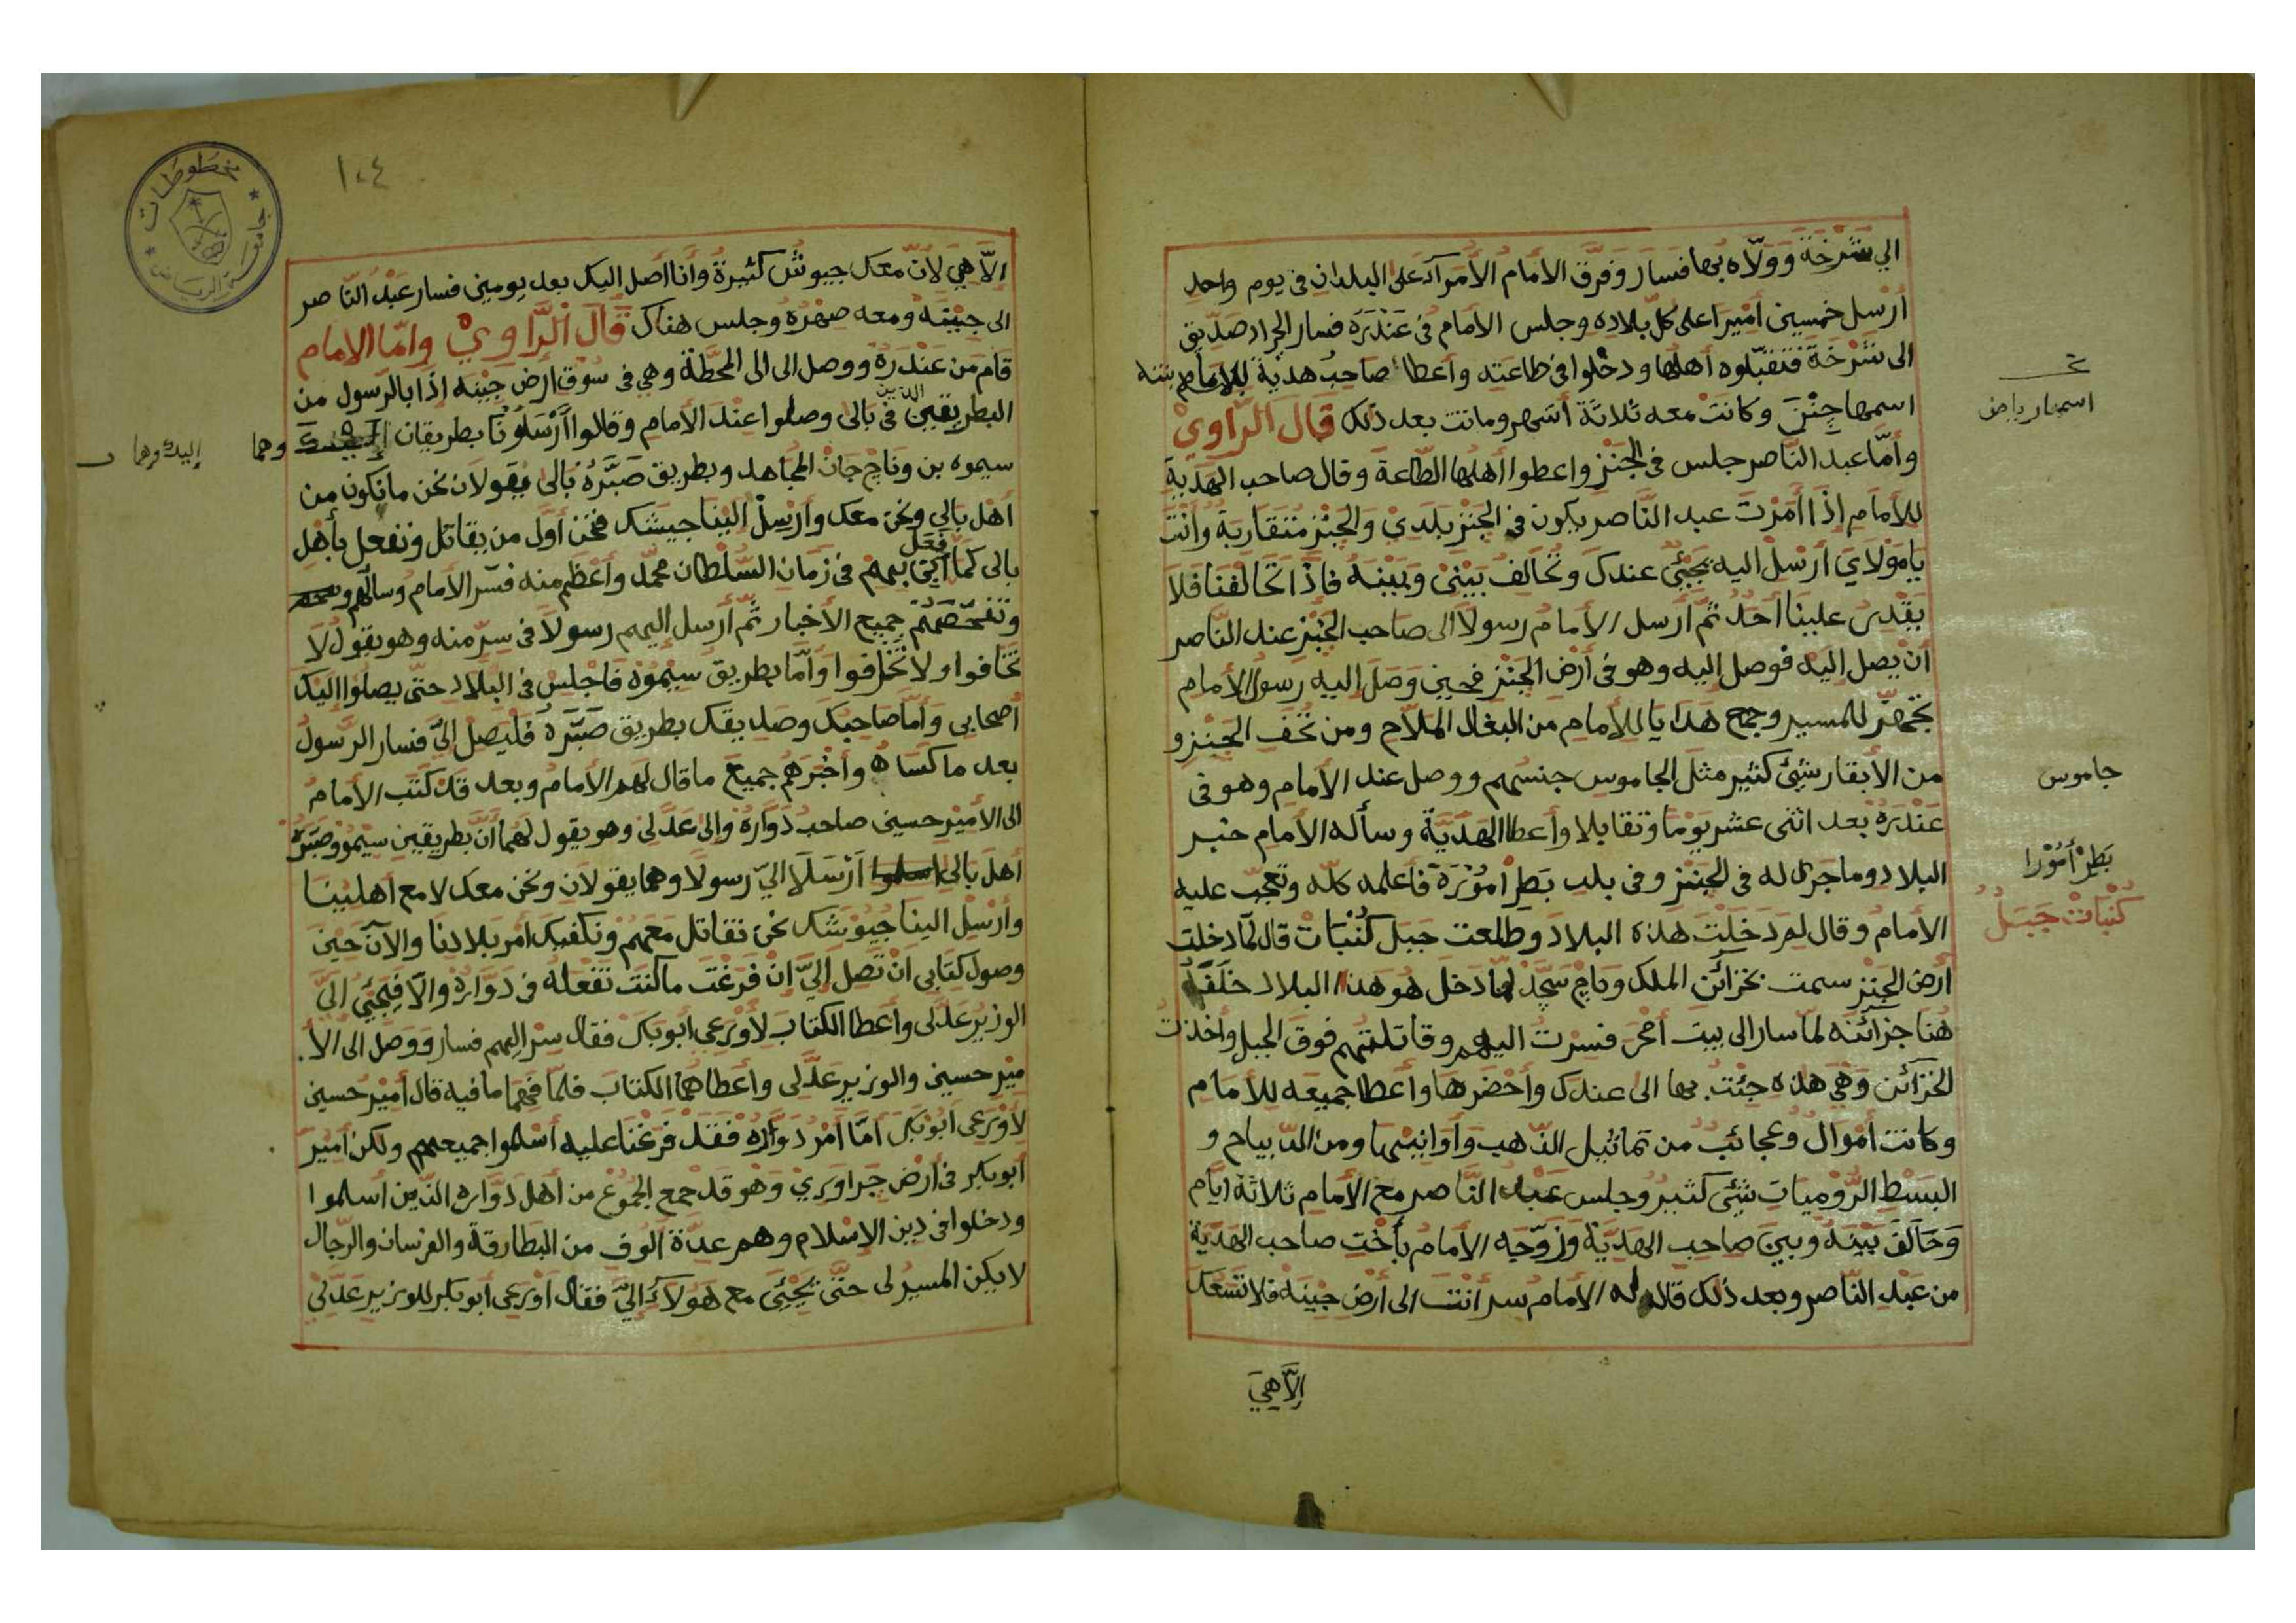 الي شرخة وولاه بها فسار وفرق الأمام الأمرآء على البلدان في يوم واحد
أرسل خمسين أميرا على كل بلاده وجلس الامام في عندره فسار الجراد صديق
الى شرخة فتقبلوه أهلها ودخلوا في طاعته وأعطا صاحب هدية للإمام بنته
اسمها جنن وكانت معه ثلاثة أشهر وماتت بعد ذلك قال الراوي
وأما عبد الناصر جلس في الجنز واعطوا أهلها الطاعة وقال صاحب الهدية
للأمام إذا أمرت عبد الناصر يكون في الجنز بلدي والجنز متقاربة وأنت
يا مولاي أرسل اليه يجيئ عندك وتحالف بيني وبينه فإذا تحالفنا فلا
يقدر علينا أحد ثم أرسل الأمام رسولا الى صاحب الجنز عند الناصر
أن يصل إليه فوصل إليه وهو في أرض الجنز فحين وصل إليه رسول الأمام
تجهز للمسير وجمع هدايا للأمام من البغال الملاح ومن تحف الجنز و
من الأبقار شيئ كثير مثل الجاموس جنسهم ووصل عند الأمام وهو في
عندره بعد اثنى عشر يوما وتقابلا وأعطا الهدية وسأله الأمام خبر
البلاد وما جرى له في الجنز وفي بلد بطر أمورة فأعلمه كله وتعجب عليه
الأمام وقال لم دخلت هذه البلاد وطلعت جبل كنبات قال لما دخلت
أرض الجنز سمت بخزائن الملك وناج سجد لما دخل هو هذا البلاد خلف
هنا خزائنه لما سار الى بيت أمحر فسرت اليهم وقاتلتهم فوق الجبل وأخذت
الخزائن وهي هذه جئت بها الى عندك وأحضرها وأعطا جميعه للأمام
وكانت أموال وعجائب من تماثيل الذهب وأوانيها ومن الديباج و
البسط الروميات شيئ كثير وجلس عبد الناصر مع الأمام ثلاثة أيام
وحالف بينه وبين صاحب الهدية وزوجه الأمام بأخت صاحب الهدية
من عبد الناصر وبعد ذلك قال له الأمام سر أنت الى أرض جينة فلا تسعك
إلا هي
اسمها رياض
جاموس
بطر أمورا
كنبات جبل
١٠٤
مخطوطات
جامعة الرياض
إلا هي لأن معك جيوش كثيرة وأنا أصل اليك بعد يومين فسار عبد الناصر
الى جينة ومعه صهره وجلس هناك قال الراوي وأما الامام
قام من عندرة ووصل الى الى المحطة وهي في سوق أرض جينه إذا بالرسول من
البطريقين الذين في بالى وصلوا عند الأمام وقالوا أرسلونا بطريقان وهما
إليك وهما
سيموه بن وناج جان المجاهد وبطريق صبره بالى يقولان نحن ما نكون من
أهل بالي ونحن معك وأرسل الينا جيشك فنحن أول من يقاتل ونفعل بأهل
بالى كما فعل بهم في زمان السلطان محمد وأعظم منه فسر الأمام وسألهم
وتفحصهم جميع الأخبار ثم أرسل إليهم رسولا في سر منه وهو يقول لا
تخافوا ولا تخلفوا وأما بطريق سيموه فاجلس في البلاد حتى يصلوا اليك
أصحابي وأما صاحبك وصديقك بطريق صبره فليصل إلي فسار الرسول
بعد ما كساه وأخبرهم جميع ما قال لهم الأمام وبعد قد كتب الأمام
الى الأمير حسين صاحب دواره والى عدلى وهو يقول لهما أن بطريقين سيمو وصبره
أهل بالى أرسلا الي رسولا وهما يقولان ونحن معك لا مع أهلينا
وأرسل الينا جيوشك نحن نقاتل معهم ونكفيك أمر بلادنا والآن حين
وصول كتابي ان تصل إلي إن فرغت ما كنت تفعله في دواره والا فيجيئ الي
الوزير عدلى وأعطا الكتاب لأورعي أبو بكر فقال سر إليهم فسار ووصل الى الأ
مير حسين والوزير عدلى وأعطاهما الكتاب فلما فهما ما فيه قال أمير حسين
لأورعى أبو بكر أما أمر دواره فقد فرغنا عليه أسلموا جميعهم ولكن أمير
أبو بكر في أرض جراوري وهو قد جمع الجموع من أهل دواره الذين أسلموا
ودخلوا في دين الاسلام وهم عدة ألوف من البطارقة والفرسان والرجال
لا يكن المسير لى حتى يجيئ مع هولاء إلي فقال أورعى أبو بكر للوزير عدلي